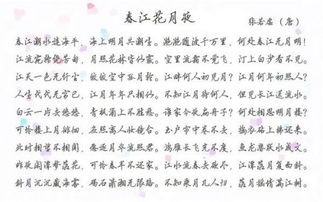 春江花月夜
张若虚（唐）
春江潮水连海平，海上明月共潮生。滟滟随波千万里，何处春江无月明！
江流宛转绕芳甸，月照花林皆似霰。空里流霜不觉飞，汀上白沙看不见。
江天一色无纤尘，皎皎空中孤月轮。江畔何人初见月？江月何年初照人？
人生代代无穷已，江月年年只相似。不知江月待何人，但见长江送流水。
白云一片去悠悠，青枫浦上不胜愁。谁家今夜扁舟子？何处相思明月楼？
可怜楼上月徘徊，应照离人妆镜台。玉户帘中卷不去，捣衣砧上拂还来。
此时相望不相闻，愿逐月华流照君。鸿雁长飞光不度，鱼龙潜跃水成文。
昨夜闲潭梦落花，可怜春半不还家。江水流春去欲尽，江潭落月复西斜。
斜月沉沉藏海雾，碣石潇湘无限路。不知乘月几人归，落月摇情满江树。